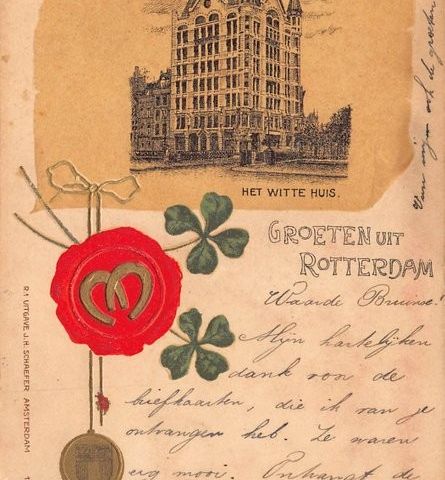 HET WITTE HUIS.
GROETEN UIT
ROTTERDAM
Waarde Bruinse!
Mijn hartelijken
dank voor de
briefkaarten, die ik van je
ontvangen heb. Ze waren
erg mooi. de
ook de groeten
R. 1 UITGAVE J. H. SCHAEFER AMSTERDAM